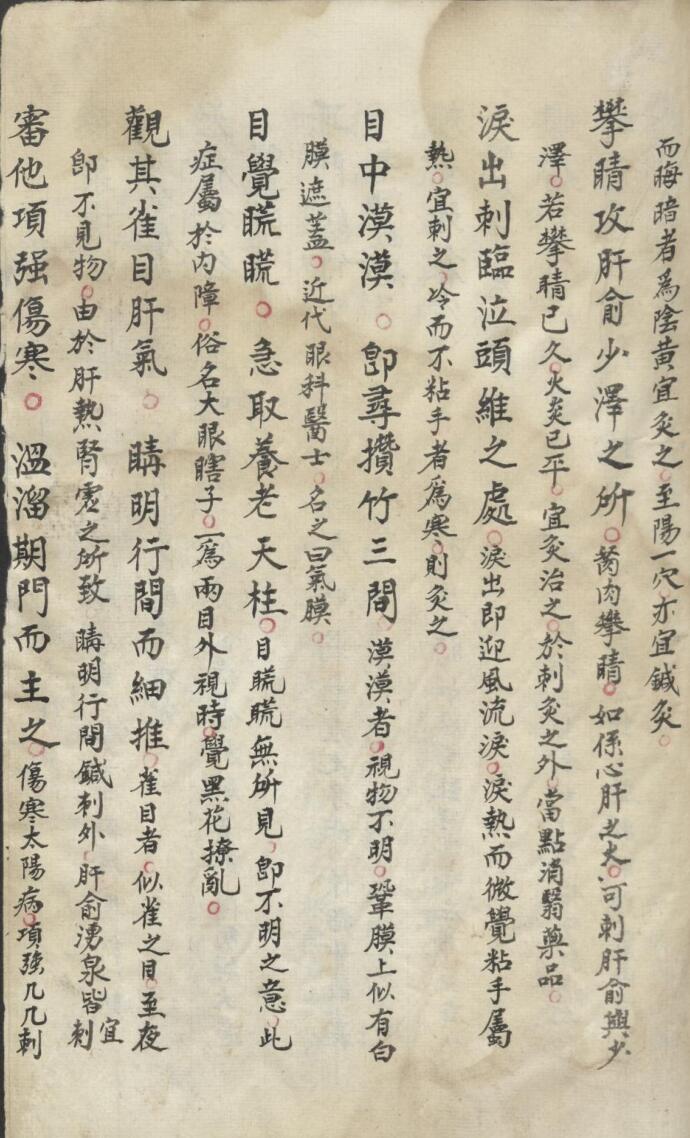 而晦暗者爲陰黃宜灸之。至陽一穴。亦宜鍼灸。
攀睛攻肝俞少澤之所。胬肉攀睛。如係心肝之火。可刺肝俞與少
澤。若攀睛已久。火炎已平。宜灸治之。於刺灸之外。當點消翳藥品。
淚出刺臨泣頭維之處。淚出即迎風流淚。淚熱而微覺粘手屬
熱。宜刺之。冷而不粘手者爲寒。則灸之。
目中漠漠。卽尋攢竹三間。漠漠者。視物不明。鞏膜上似有白
膜遮蓋。近代眼科醫士。名之曰氣膜。
目覺䀮䀮。急取養老天柱。目䀮䀮無所見。卽不明之意。此
症屬於內障。俗名大眼瞎子。一爲兩目外視時。覺黑花撩亂。
觀其雀目肝氣。睛明行間而細推。雀目者。似雀之目。至夜
卽不見物。由於肝熱腎虛之所致。睛明行間鍼刺外。肝俞湧泉皆宜刺
審他項强傷寒。溫溜期門而主之。傷寒太陽病。項強几几刺